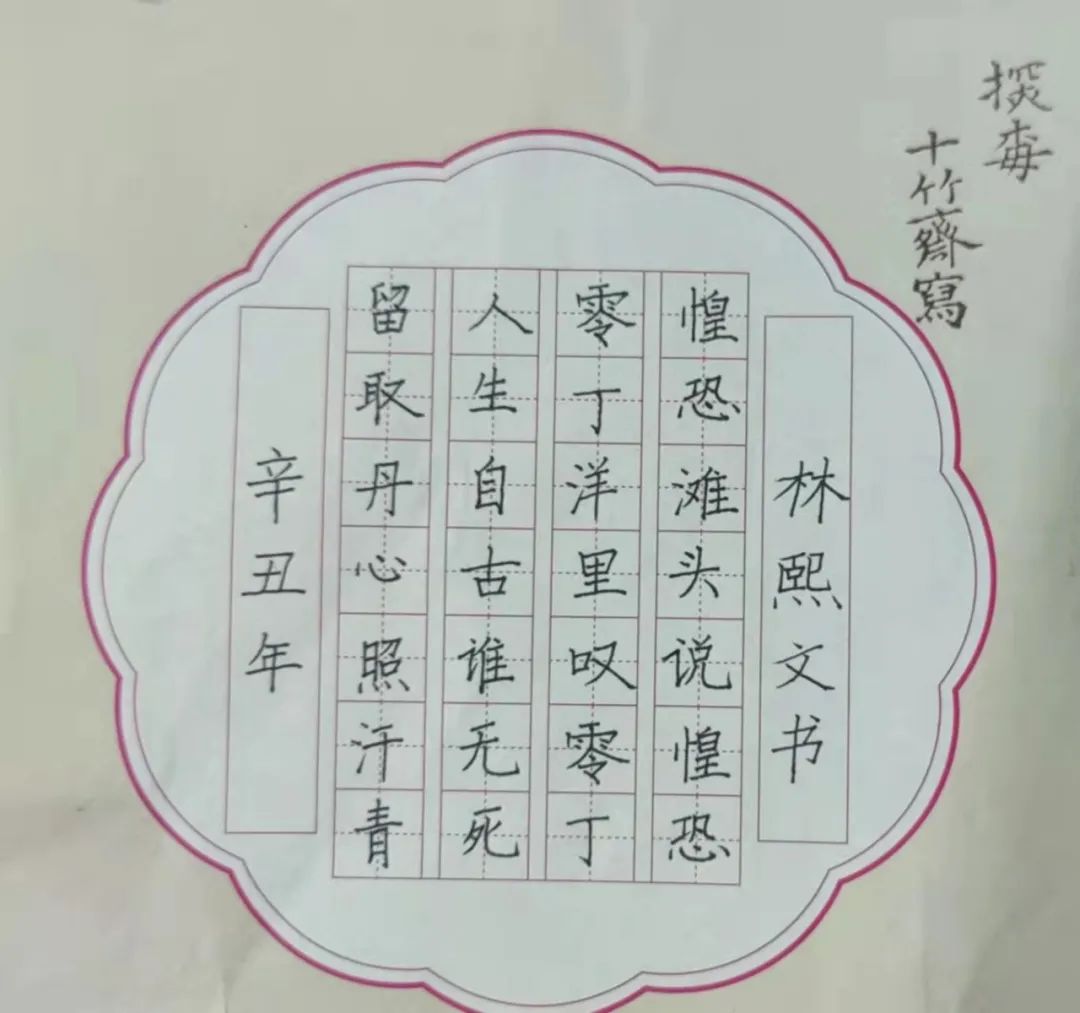 十竹齋寫
林熙文书
惶恐滩头说惶恐
零丁洋里叹零丁
人生自古谁无死
留取丹心照汗青
辛丑年